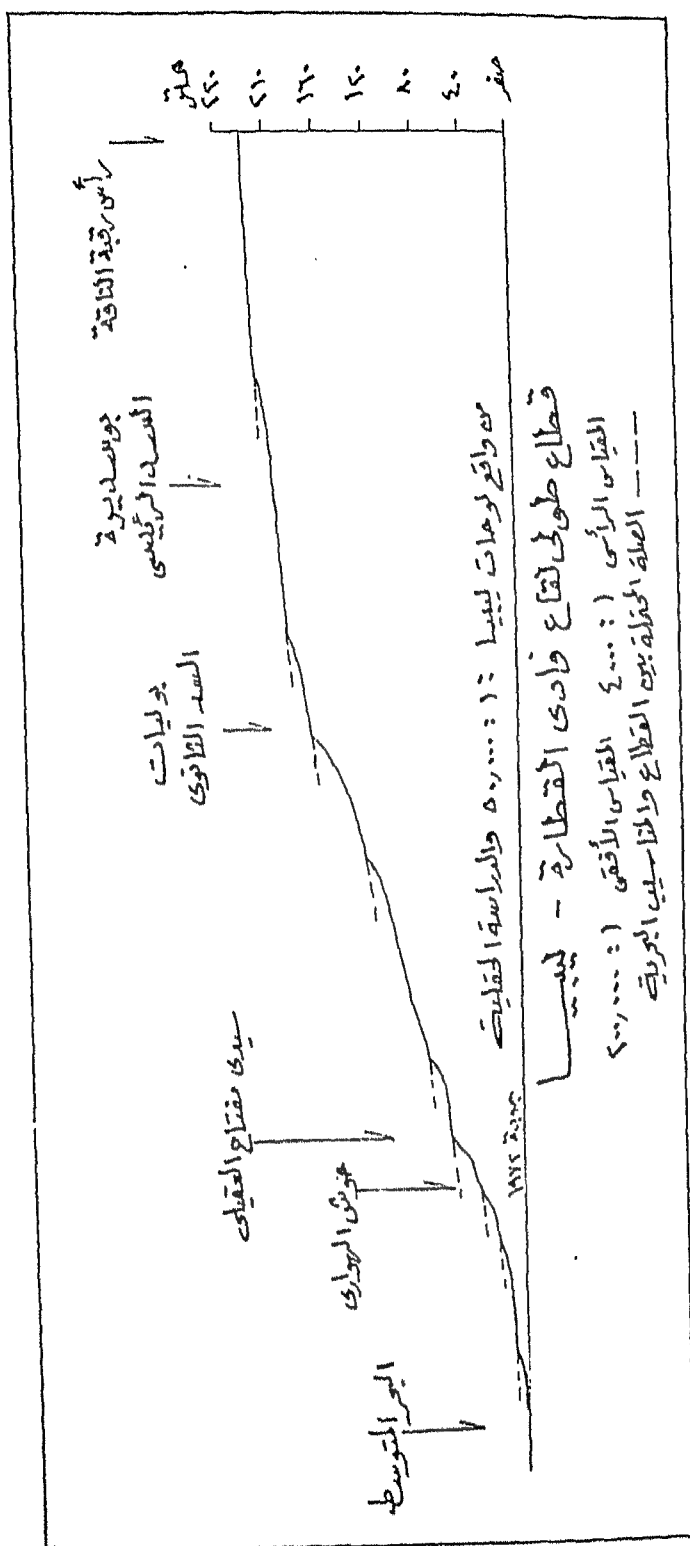 متر
٢٤٠
٢١٠
١٦٠
١٢٠
٨٠
٤٠
صفر
رأس رقبة الناقة
بوسديرة
السد الرئيسى
بوليات
السد الثانوى
سيدى مفتاح العقيلى
حوش الهوارى
البحر المتوسط
من واقع لوحات ليبيا ١ : ٥٠,٠٠٠ والدراسة الحقلية
جودة ١٩٧٢
قطاع طولى لقاع وادى القطارة - ليبيا
المقياس الرأسى ١ : ٤٠٠٠ المقياس الأفقى ١ : ٢٠٠,٠٠٠
---- الصلة المحتملة بين القطاع والمناسيب البحرية